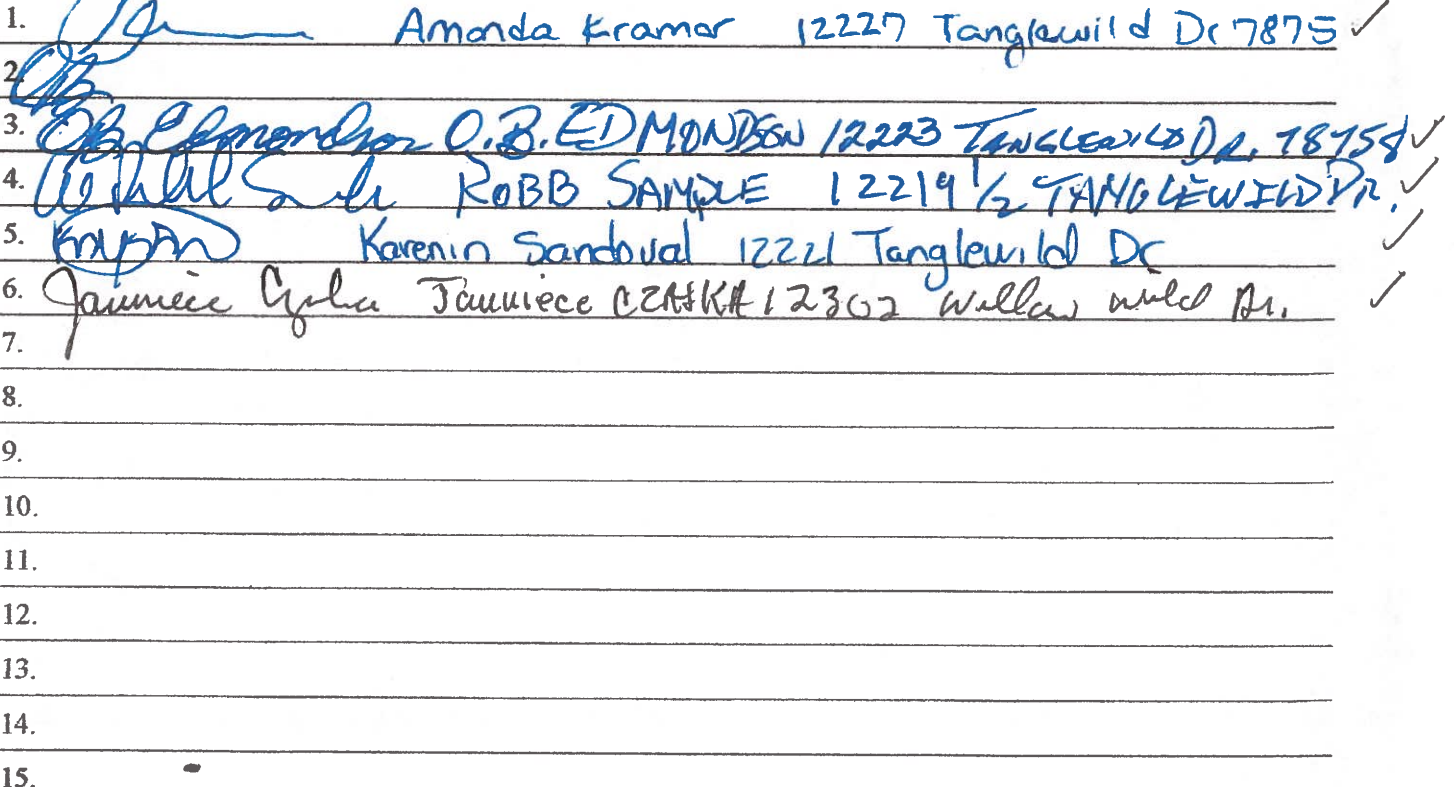 1. Amanda Kramar 12227 Tanglewild Dr 7875 ✓
2.
3. O.B. Edmondson O.B. EDMONDSON 12223 TANGLEWILD DR. 78758 ✓
4. ROBB SAMPLE 12219 1/2 TANGLEWILD DR. ✓
5. Karenin Sandoval 12221 Tanglewild Dr ✓
6. Jauniece CZAJKA 12302 Willow wild Dr. ✓
7.
8.
9.
10.
11.
12.
13.
14.
15.